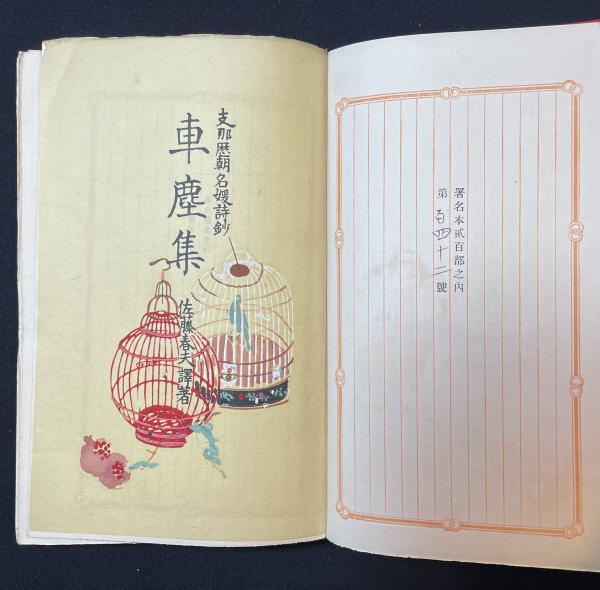 署名本貳百部之內
第百四十二號
支那歴朝名媛詩鈔
車塵集
佐藤春夫譯著